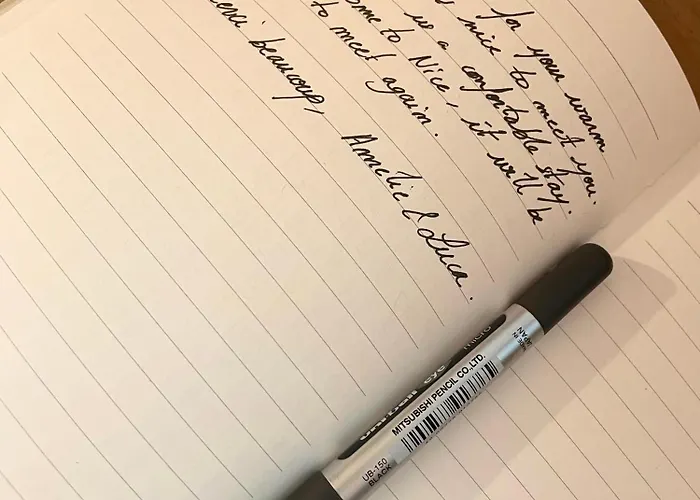 for your warm
nice to meet you.
us a comfortable stay.
ome to Nice, it will be
to meet again.
beaucoup,
Amélie & Luca.
uni-ball eye micro
MITSUBISHI PENCIL CO.,LTD.
MADE IN
JAPAN
UB-150
BLACK